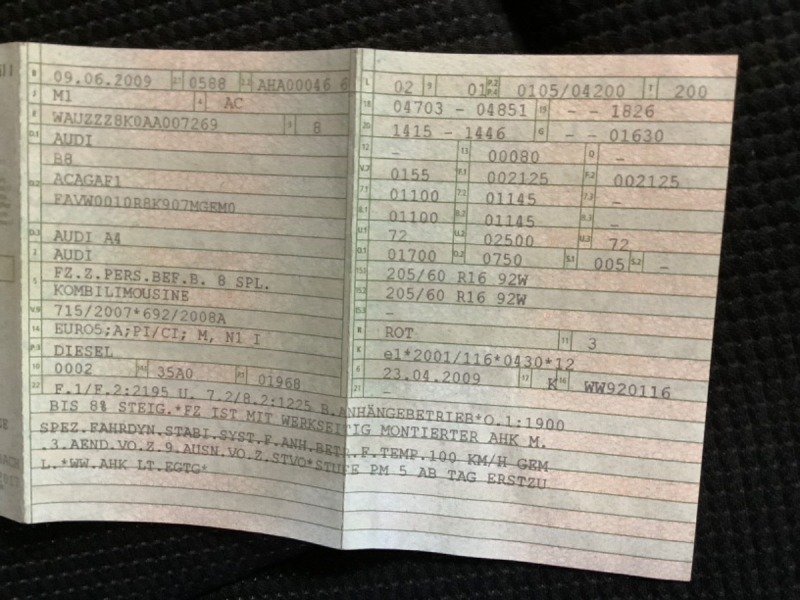 B 09.06.2009 2.1 0588 2.2 AHA00046 6
J M1 4 AC
E WAUZZZ8K0AA007269 3 8
D.1 AUDI
B8
D.2 ACAGAF1
FAVW0010R8K907MGEM0
D.3 AUDI A4
2 AUDI
5 FZ.Z.PERS.BEF.B. 8 SPL.
KOMBILIMOUSINE
V.9 715/2007*692/2008A
14 EURO5;A;PI/CI; M, N1 I
P.3 DIESEL
10 0002 14.1 35A0 P.1 01968
L 02 9 01 P.2 P.4 0105/04200 T 200
18 04703 - 04851 19 - - 1826
20 1415 - 1446 G - - 01630
12 - 13 00080 Q -
V.7 0155 F.1 002125 F.2 002125
7.1 01100 7.2 01145 7.3 -
8.1 01100 8.2 01145 8.3 -
U.1 72 U.2 02500 U.3 72
O.1 01700 O.2 0750 S.1 005 S.2 -
15.1 205/60 R16 92W
15.2 205/60 R16 92W
15.3 -
R ROT 11 3
K e1*2001/116*0430*12
6 23.04.2009 17 K 16 WW920116
21 -
22 F.1/F.2:2195 U. 7.2/8.2:1225 B.ANHÄNGEBETRIEB*O.1:1900
BIS 8% STEIG.*FZ IST MIT WERKSEITIG MONTIERTER AHK M.
SPEZ.FAHRDYN.STABI.SYST.F.ANH.BETR.F.TEMP.100 KM/H GEM
.3.AEND.VO.Z.9.AUSN.VO.Z.STVO*STUFE PM 5 AB TAG ERSTZU
L.*WW.AHK LT.EGTG*